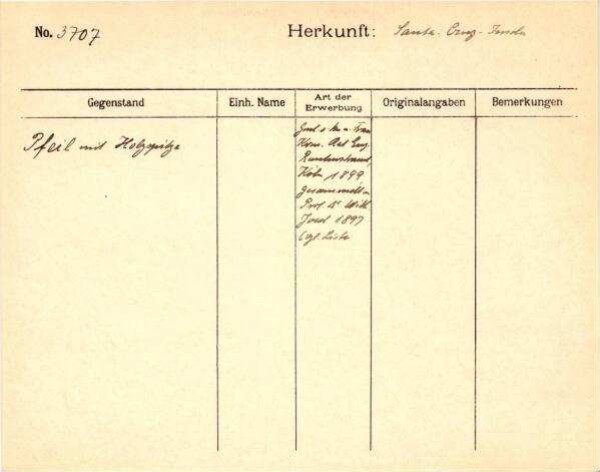 No. 3707 Herkunft: Santa-Cruz-Inseln
Gegenstand Einh. Name Art der Erwerbung Originalangaben Bemerkungen
Pfeil mit Holzspitze
Kons.
Köln 1899
gesammelt v.
Prof. Dr Wilh.
Joest 1897
vgl. Liste